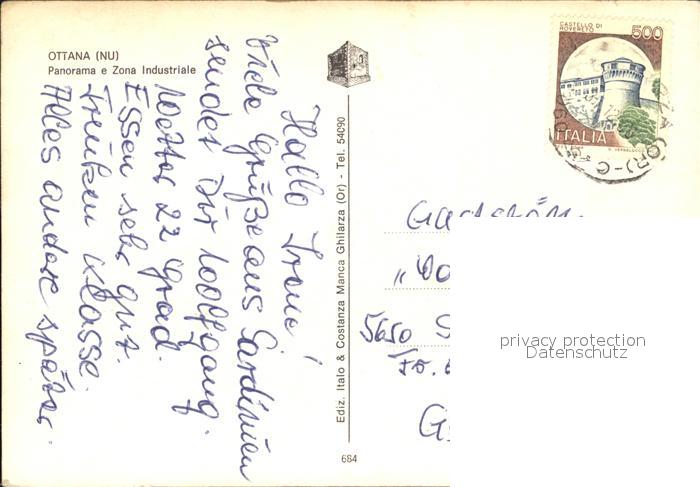 OTTANA (NU)
Panorama e Zona Industriale
Hallo Irene!
Viele Grüße aus Sardinien
sendet Dir Wolfgang.
Wetter 22 Grad.
Essen sehr gut.
Trinken Klasse.
Alles andere später.
Ediz. Italo & Costanza Manca Ghilarza (Or) - Tel. 54090
684
CASTELLO DI
ROVERETO
500
ITALIA
(OR)
5650 S
privacy protection
Datenschutz